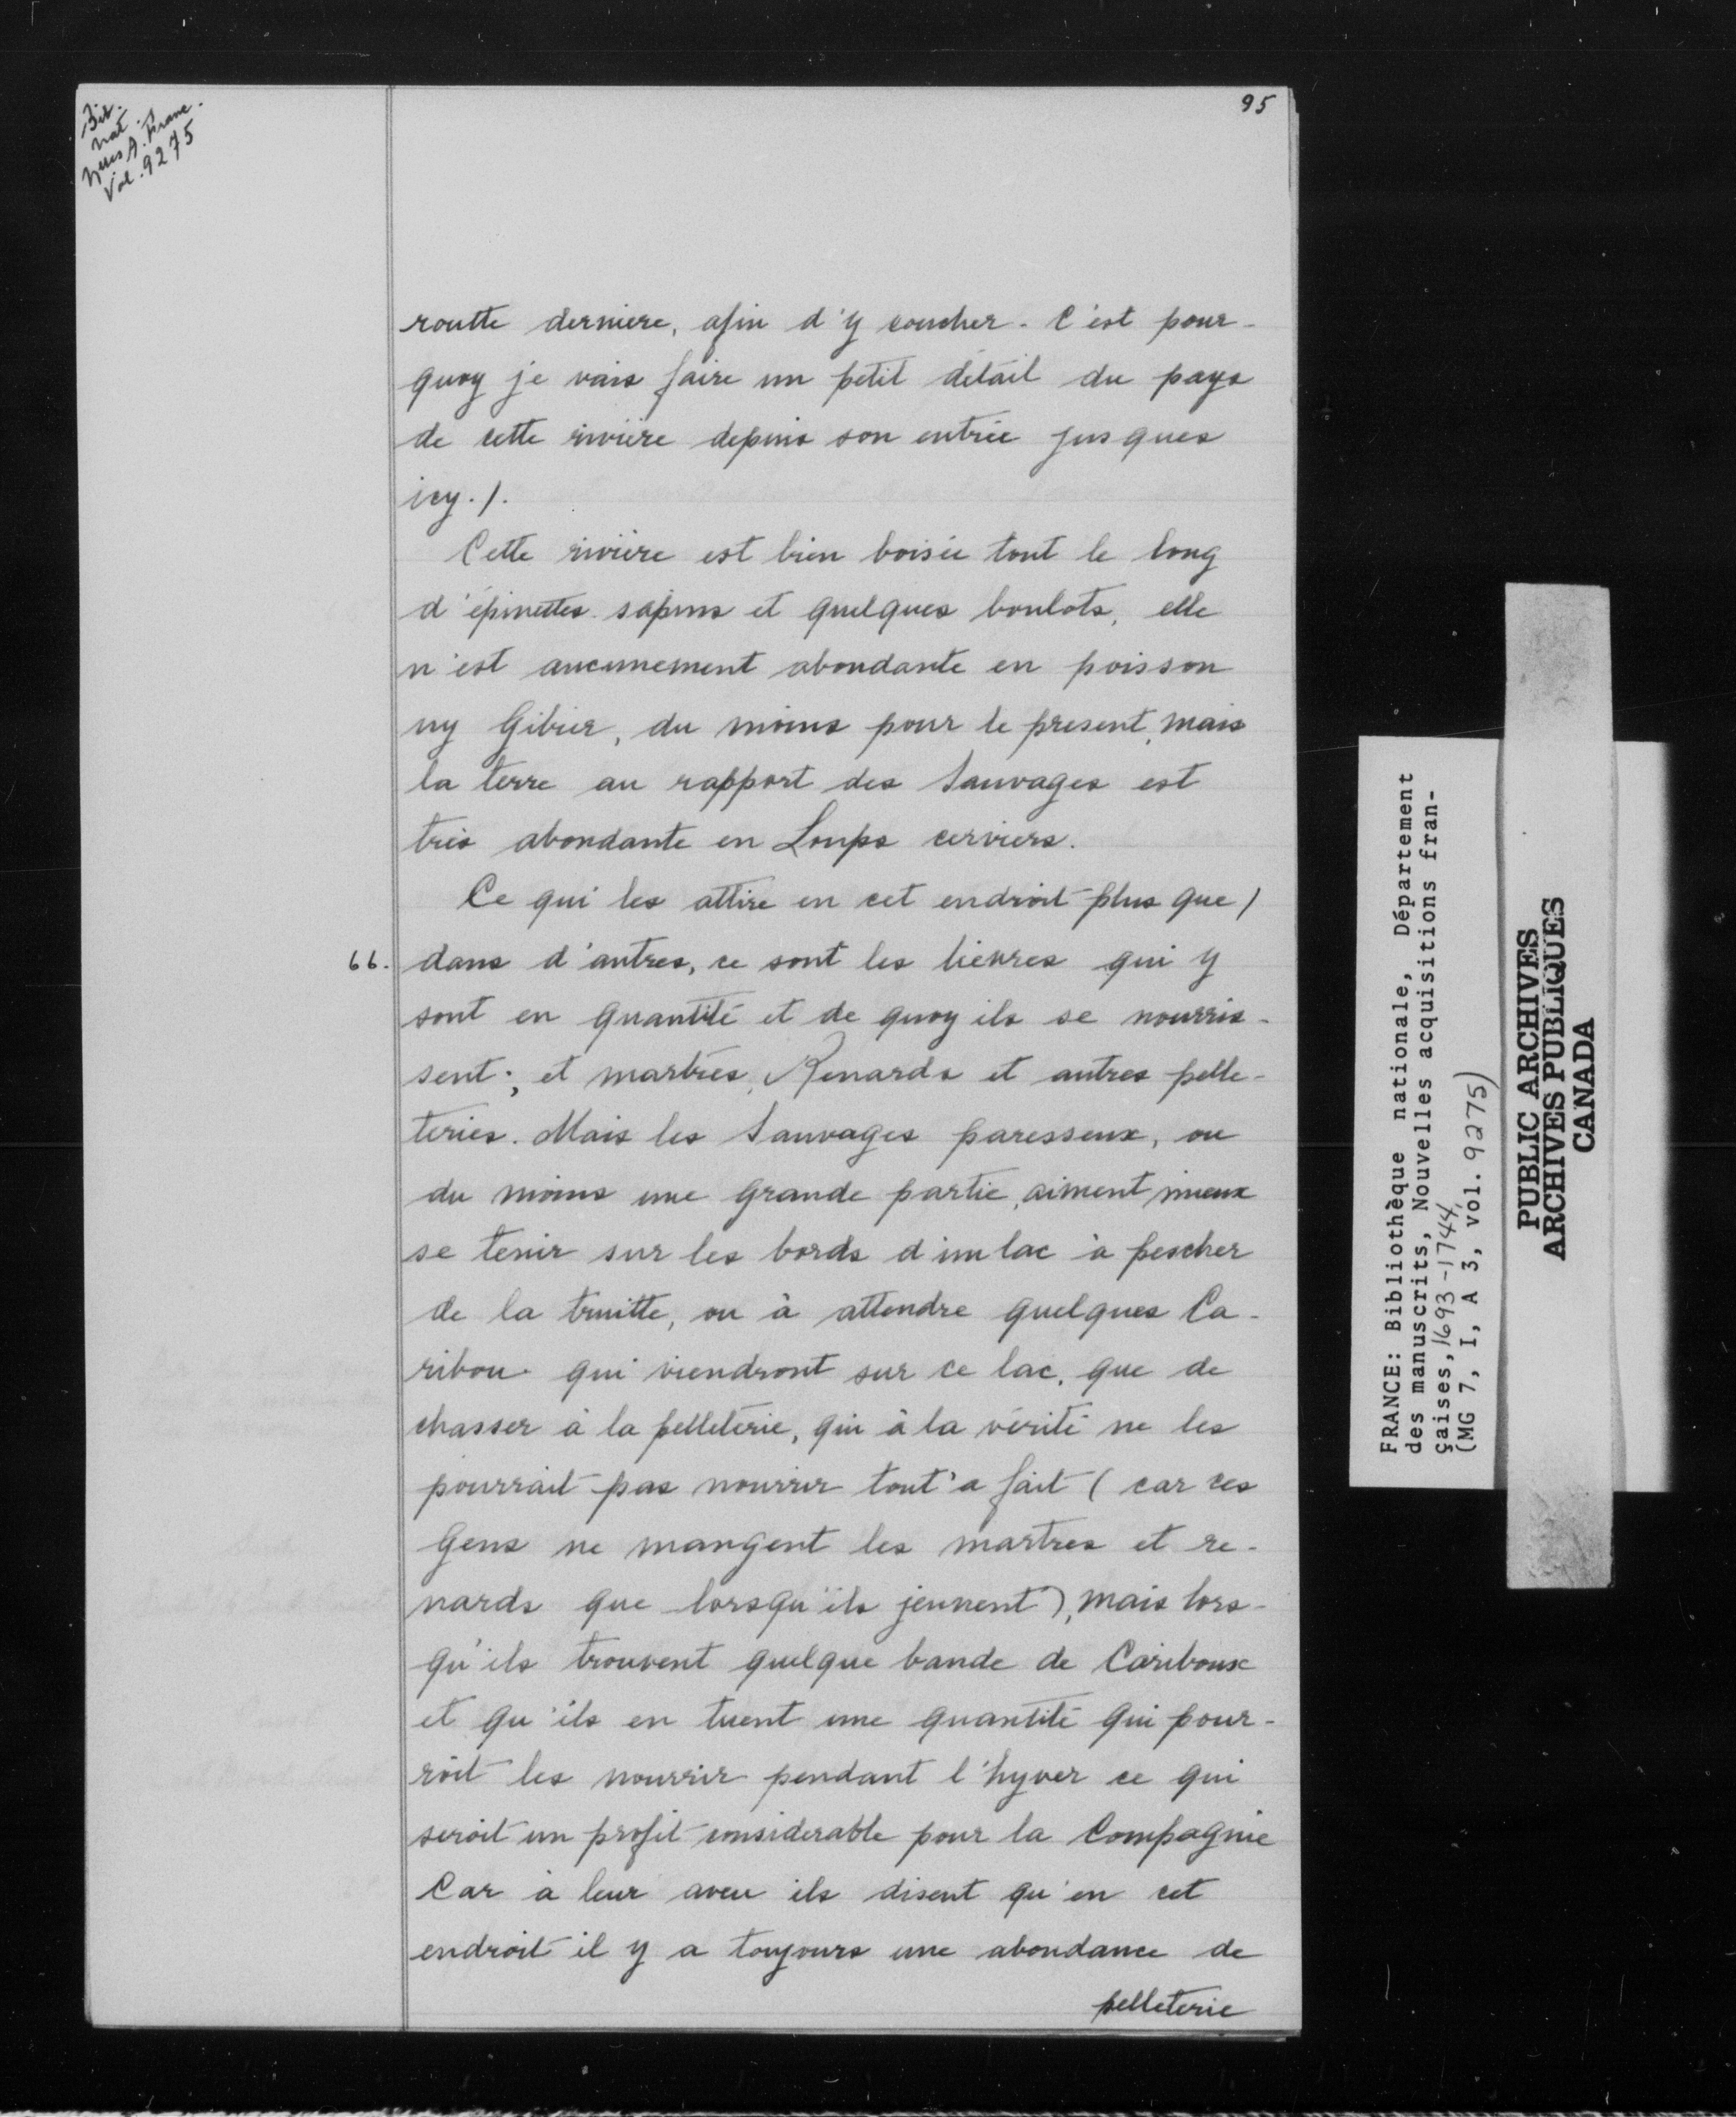 95
Bib.
nat.
Nelles A. Franc.
Vol. 9275
routte derniere, afin d'y coucher. C'est pour-
quoy je vais faire un petit détail du pays
de cette rivière depuis son entrée jusques
icy./.
Cette rivière est bien boisée tout le long
d'épinettes sapins et quelques boulots, elle
n'est aucunement abondante en poisson
ny Gibier, du moins pour le present, mais
la terre au rapport des Sauvages est
très abondante en Loups cerviers.
Ce qui les attire en cet endroit plus que /
66. dans d'autres, ce sont les lievres qui y
sont en quantité et de quoy ils se nourris-
sent; et martres, Renards et autres pelle-
teries. Mais les Sauvages paresseux, ou
du moins une grande partie, aiment mieux
se tenir sur les bords d'un lac à pescher
de la truitte, ou à attendre quelques Ca-
ribou qui viendront sur ce lac, que de
chasser à la pelleterie, qui à la vérité ne les
pourrait pas nourrir tout à fait (car ces
Gens ne mangent les martres et re-
nards que lorsqu'ils jeunent), mais lors-
qu'ils trouvent quelque bande de Caribous
et qu'ils en tuent une quantité qui pour-
roit les nourrir pendant l'hyver ce qui
seroit un profit considerable pour la Compagnie
Car à leur aveu ils disent qu'en cet
endroit il y a toujours une abondance de
pelleterie
FRANCE: Bibliothèque nationale, Département
des manuscrits, Nouvelles acquisitions fran-
çaises, 1693-1744,
(MG 7, I, A 3, vol. 9275)
PUBLIC ARCHIVES
ARCHIVES PUBLIQUES
CANADA